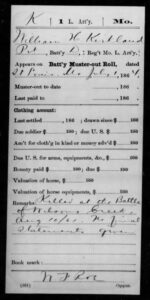 K | 1 L. Art'y. | Mo.
William H. Kirtland
Pvt., Batt'y , Reg't Mo. L. Art'y.
Appears on
Batt'y Muster-out Roll, dated
St Louis, Mo July 1, 186
Muster-out to date , 186 .
Last paid to , 186 .
Clothing account:
Last settled , 186 ; drawn since $ 100
Due soldier $ 100; due U. S. $ 100
Am't for cloth'g in kind or money adv'd $ 100
Due U. S. for arms, equipments, &c., $ 100
Bounty paid $ 100; due $ 100
Valuation of horse, $ 100
Valuation of horse equipments, $ 100
Remarks: Killed at the Battle
of Wilsons Creek
Aug 10/61. No final
statements given
Book mark:
(861) Copyist.